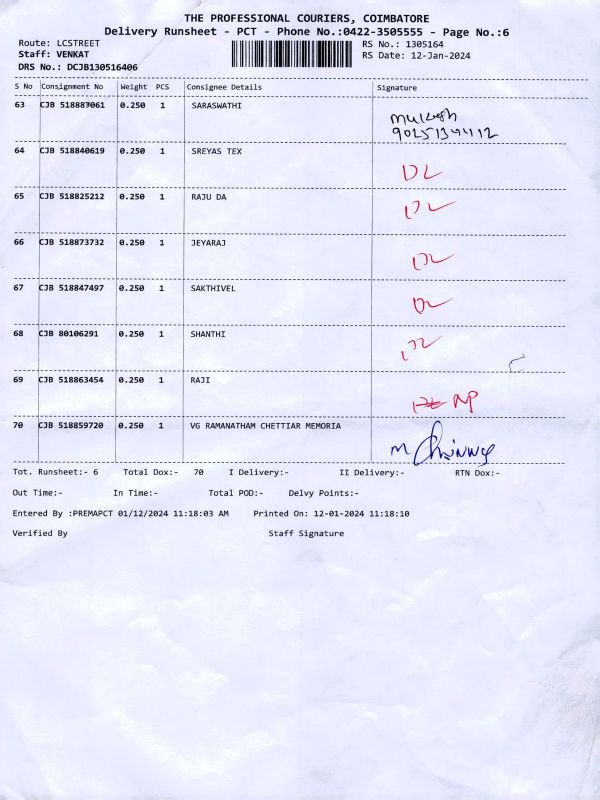 THE PROFESSIONAL COURIERS, COIMBATORE
Delivery Runsheet - PCT - Phone No.:0422-3505555 - Page No.:6
Route: LCSTREET RS No.: 1305164
Staff: VENKAT RS Date: 12-Jan-2024
DRS No.: DCJB130516406
S No Consignment No Weight PCS Consignee Details Signature
63 CJB 518887061 0.250 1 SARASWATHI
64 CJB 518840619 0.250 1 SREYAS TEX DL
65 CJB 518825212 0.250 1 RAJU DA DL
66 CJB 518873732 0.250 1 JEYARAJ DL
67 CJB 518847497 0.250 1 SAKTHIVEL DL
68 CJB 80106291 0.250 1 SHANTHI DL
69 CJB 518863454 0.250 1 RAJI NP
70 CJB 518859720 0.250 1 VG RAMANATHAM CHETTIAR MEMORIA
Tot. Runsheet:- 6 Total Dox:- 70 I Delivery:- II Delivery:- RTN Dox:-
Out Time:- In Time:- Total POD:- Delvy Points:-
Entered By :PREMAPCT 01/12/2024 11:18:03 AM Printed On: 12-01-2024 11:18:10
Verified By Staff Signature